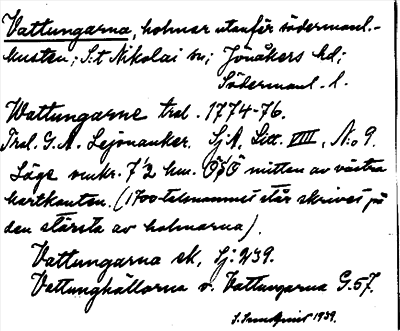 Vattungarna, holmar utanför södermanl.-
kusten; S:t Nikolai sn; Jönåkers hd;
Södermanl. l.
Wattungarne trol. 1774-76.
Trol. G. A. Lejonanker. SjA, Litt. VIII, No 9.
Läge omkr. 7½ km. ÖSÖ mitten av västra
kartkanten. (1700-talsnamnet står skrivet på
den största av holmarna).
Vattungarna sk, Sj: 239.
Vattunghällorna v. Vattungarna G. 57.
1939.